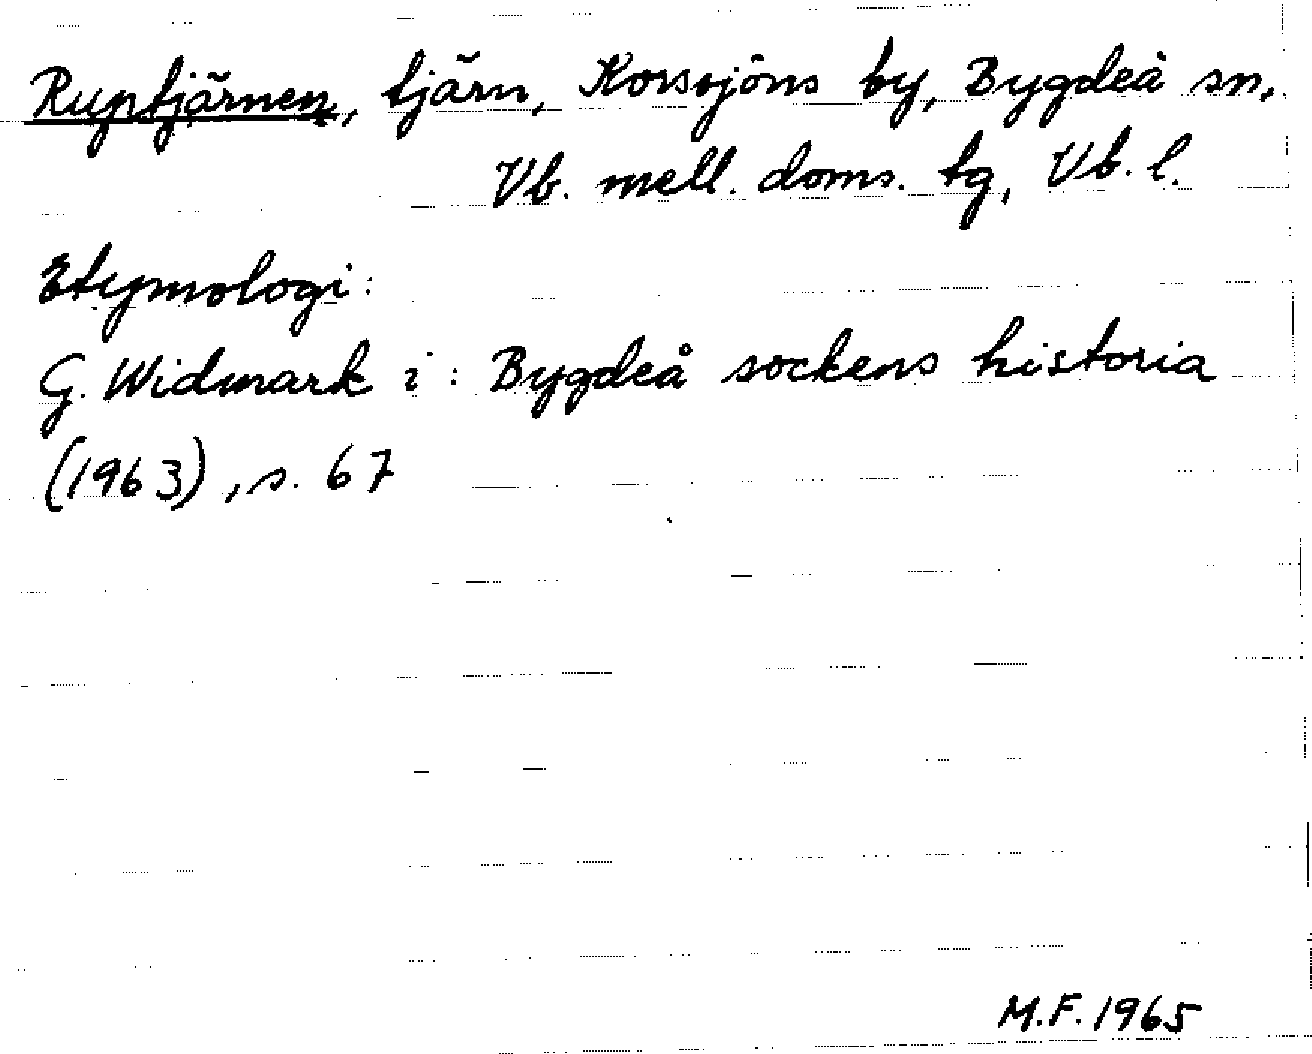 Ruptjärnen, tjärn, Korssjöns by, Bygdeå sn,
Vb. mell. doms. tg, Vb. l.
Etymologi:
G. Widmark i: Bygdeå sockens historia
(1963), s. 67
M.F. 1965